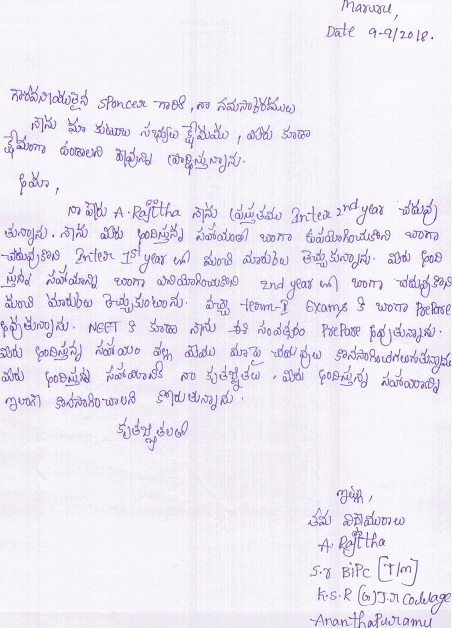 Maruru,
Date 9-9/2018.
గౌరవనీయులైన sponcer గారికి, నా నమస్కారములు
నేను మా కుటుంబ సభ్యులు క్షేమము, మీరు కూడా
క్షేమంగా ఉండాలని దేవున్ని ప్రార్థిస్తున్నాను.
నా పేరు A. Rajitha నేను ప్రస్తుతము Inter 2nd year చదువు
తున్నాను. నేను మీరు అందిస్తున్న సహాయంతో బాగా ఉపయోగించుకొని బాగా
చదువుకొని Inter 1st year లో మంచి మార్కులు తెచ్చుకున్నాను. మీరు అంది
స్తున్న సహాయాన్ని బాగా వినియోగించుకొని 2nd year లో బాగా చదువుకొని
మంచి మార్కులు తెచ్చుకుంటాను. వచ్చు term-I Exams కి బాగా Prepare
అవుతున్నాను. NEET కి కూడా నేను ఈ సంవత్సరం Prepare అవుతున్నాను.
మీరు అందిస్తున్న సహాయం వల్ల మేము మా చదువులు కొనసాగించగలుగుతున్నాము
మీరు అందిస్తున్న సహాయానికి నా కృతజ్ఞతలు. మీరు అందిస్తున్న సహాయాన్ని
ఇలాగే కొనసాగించాలని కోరుతున్నాను.
కృతజ్ఞతలతో
ఇట్లు,
తమ విధేయురాలు
A. Rajitha
S.r BiPC [T/m]
K.S.R (G) J.r Collage
Ananthapuramu